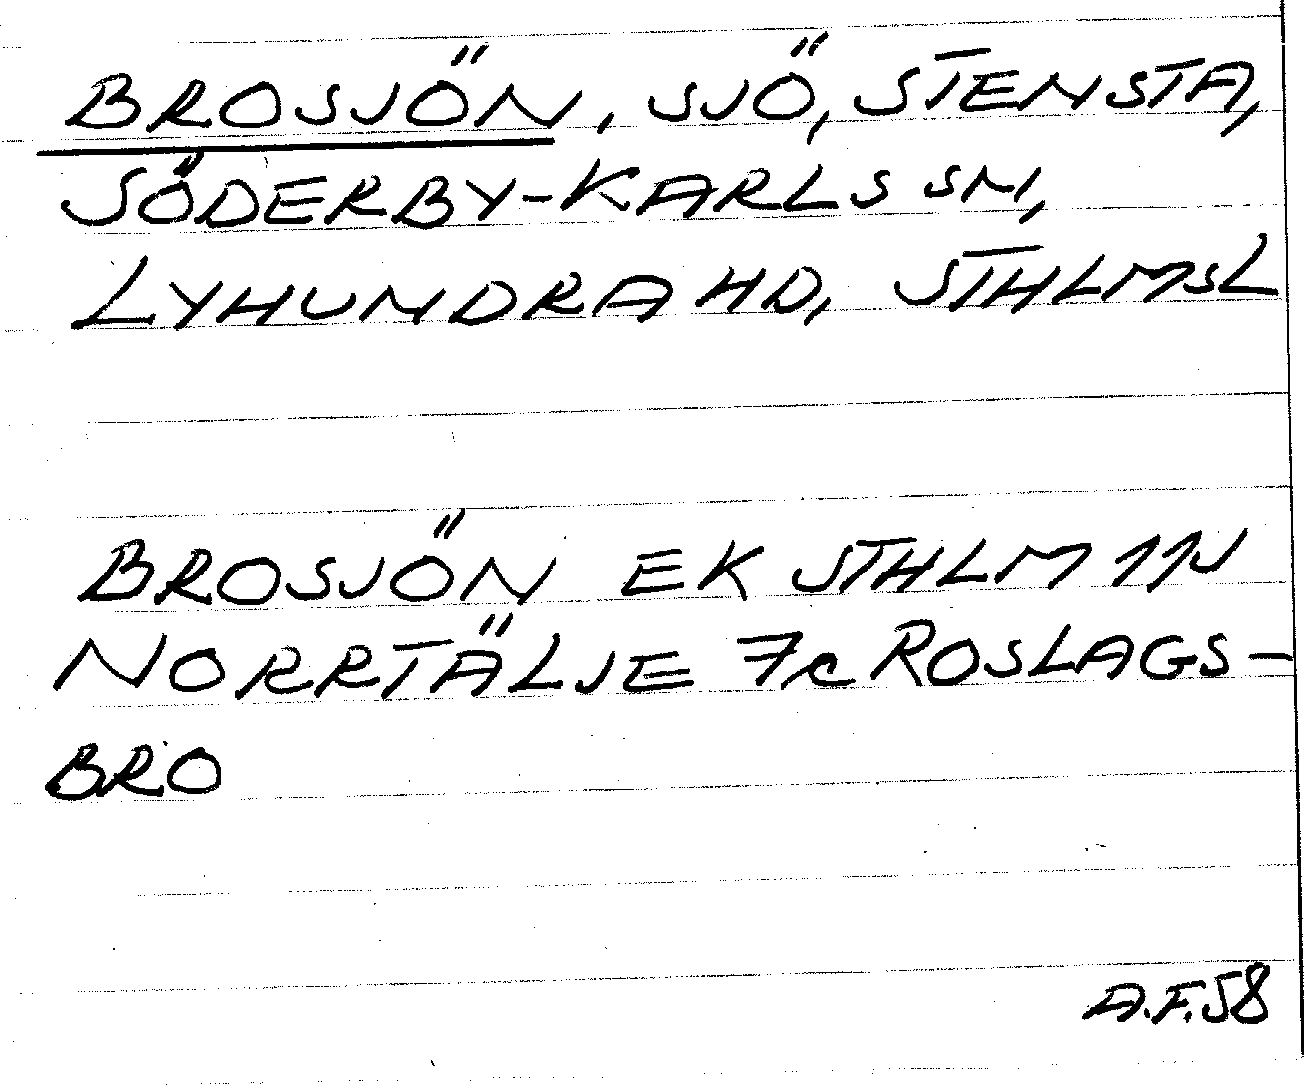 BROSJÖN, SJÖ, STENSTA,
SÖDERBY-KARLS SN,
LYHUNDRA HD, STHLMSL
BROSJÖN EK STHLM 11J
NORRTÄLJE 7c ROSLAGS-
BRO
A.F.58